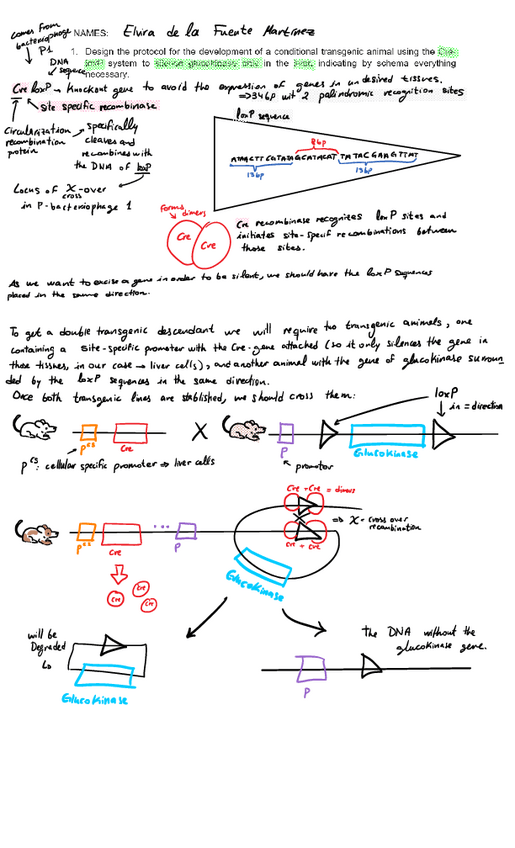 comes from
bacteriophage
P1
NAMES: Elvira de la Fuente Martínez
1. Design the protocol for the development of a conditional transgenic animal using the Cre-
loxP system to silence glucokinase only in the liver, indicating by schema everything
necessary.
DNA
sequence
Cre loxP → Knockout gene to avoid the expression of genes in undesired tissues.
⇒ 34bp wit 2 palindromic recognition sites
Site specific recombinase
Circularization
recombination
protein
specifically
cleaves and
recombines with
the DNA of loxP
Locus of X-over
cross
in P-bacteriophage 1
loxP sequence
8bp
ATAACTTCGTATA GCATACAT TATACGAAGTTAT
13bp
13bp
forms
dimers
Cre
Cre
Cre recombinase recognizes loxP sites and
initiates site-specif recombinations between
those sites.
As we want to excise a gene in order to be silent, we should have the loxP sequences
placed in the same direction.
To get a double transgenic descendant we will require two transgenic animals, one
containing a site-specific promoter with the Cre-gene attached (so it only silences the gene in
those tissues, in our case → liver cells), and another animal with the gene of glucokinase surroun
ded by the loxP sequences in the same direction.
Once both transgenic lines are stablished, we should cross them:
loxP
in = direction
Pcs
Cre
X
P
Glucokinase
Pcs: cellular specific promoter ⇒ liver cells
promotor
Cre + Cre = dimers
⇒ X - cross over
recombination
Cre + Cre
Pcs
Cre
...
P
Cre
Cre
Cre
Glucokinase
will be
Degraded
Glucokinase
The DNA without the
glucokinase gene.
P